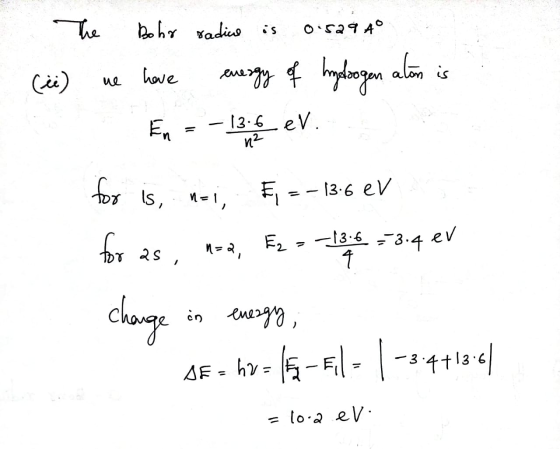 The Bohr radius is 0.529 A°
(ii) we have energy of hydrogen atom is
Eₙ = -13.6/n² eV.
for 1s, n=1, E₁ = -13.6 eV
for 2s, n=2, E₂ = -13.6/4 = -3.4 eV
change in energy,
ΔE = hν = |E₂ - E₁| = |-3.4+13.6|
= 10.2 eV.